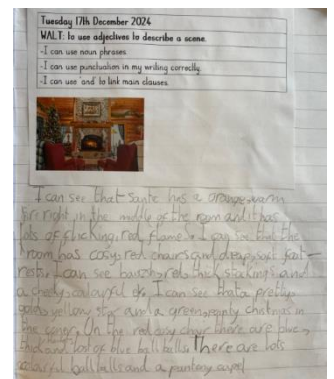 Tuesday 17th December 2024
WALT: to use adjectives to describe a scene.
-I can use noun phrases.
-I can use punctuation in my writing correctly.
-I can use 'and' to link main clauses.
I can see that Sante has a orange, warm
fire right in the middle of the room and it has
lots of flicking, red flame. I can see that the
room has cosy, red chairs and deap, soft foot-
rests. I can see red, thick stockings and
a colourful I can see that a pretty
yellow, star and a green, christmas in
the On the red cosy chair there are blue,
thick and lost of blue ball balls. There are lots
colourful ball balls and a